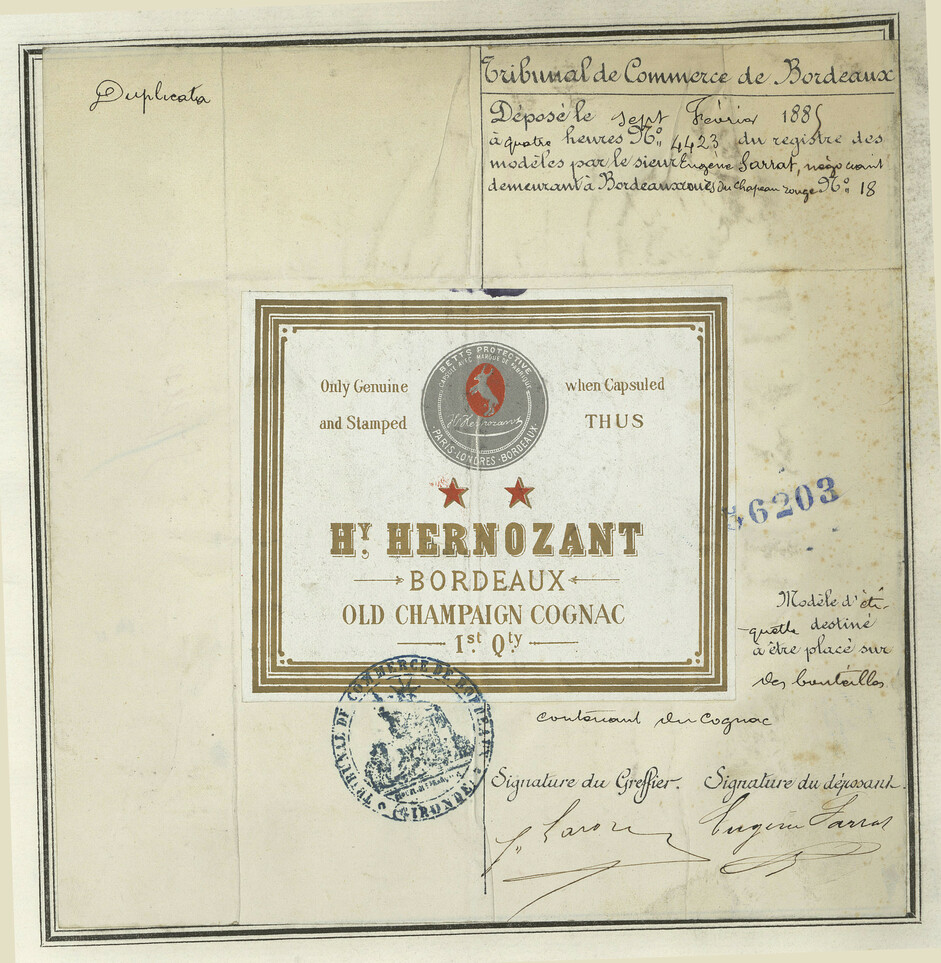 Duplicata
Tribunal de Commerce de Bordeaux
Déposé le sept Février 1885
à quatre heures No. 4423 du registre des
modèles par le sieur Eugène Sarrat, négociant
demeurant à Bordeaux du Chapeau rouge No. 18
BETTS PROTECTIVE
CAPSULE AVEC MARQUE DE FABRIQUE
Hy Hernozant
PARIS-LONDRES-BORDEAUX
Only Genuine
when Capsuled
and Stamped
THUS
HY. HERNOZANT
BORDEAUX
OLD CHAMPAIGN COGNAC
1st Qty
56203
Modèle d'éti-
quette destiné
à être placé sur
des bouteilles
contenant du cognac
TRIBUNAL DE COMMERCE DE BORDEAUX
(GIRONDE)
Signature du Greffier.
Signature du déposant.
Eugène Sarrat